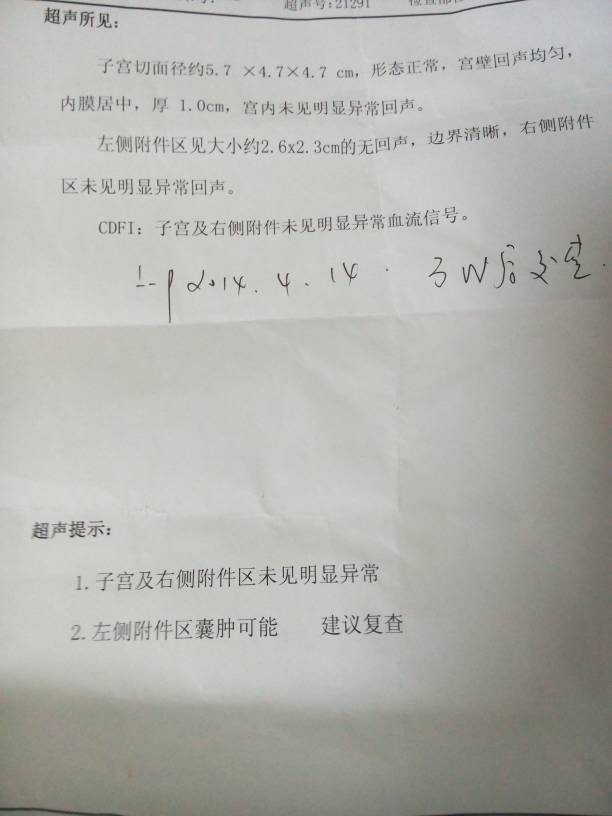 超声号:21291
超声所见:
子宫切面径约5.7 ×4.7×4.7 cm，形态正常，宫壁回声均匀，
内膜居中，厚 1.0cm，宫内未见明显异常回声。
左侧附件区见大小约2.6x2.3cm的无回声，边界清晰，右侧附件
区未见明显异常回声。
CDFI: 子宫及右侧附件未见明显异常血流信号。
2014.4.14.
超声提示:
1.子宫及右侧附件区未见明显异常
2.左侧附件区囊肿可能 建议复查